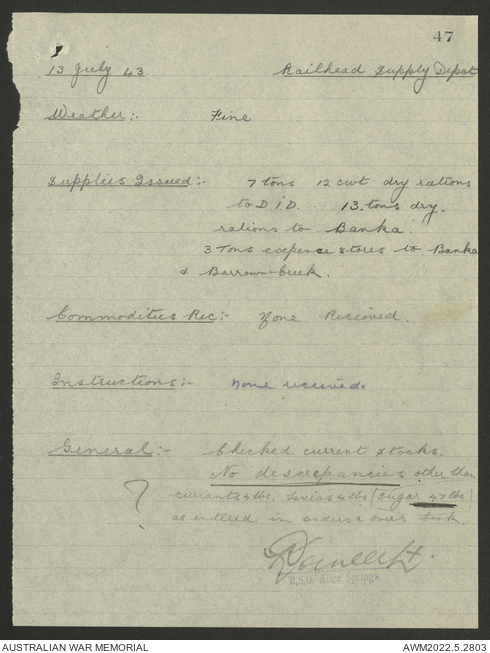 47
13 July 43 Railhead Supply Depot
Weather:- Fine
Supplies Issued:- 7 tons 12 cwt dry rations
to D.I.D. 13 tons dry
rations to Banka
3 Tons expence stores to Banka
& Barrow-Creek.
Commodities Rec:- None Received.
Instructions:- None received.
General:- Checked current stocks.
No descrepancies other than
? currants 4 lbs, 4 lbs (Sugar 47 lbs
as entered in unders & overs book.
R.S.O. Alice Springs
AUSTRALIAN WAR MEMORIAL AWM2022.5.2803